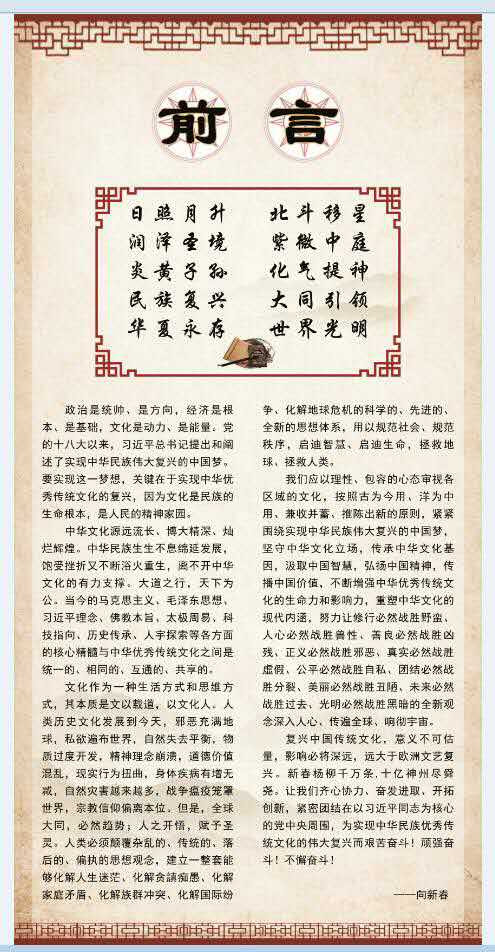 前言
日照月升 北斗移星
润泽圣境 紫微中庭
炎黄子孙 化气提神
民族复兴 大同引领
华夏永存 世界光明
政治是统帅、是方向，经济是根
本、是基础，文化是动力、是能量。党
的十八大以来，习近平总书记提出和阐
述了实现中华民族伟大复兴的中国梦。
要实现这一梦想，关键在于实现中华优
秀传统文化的复兴，因为文化是民族的
生命根本，是人民的精神家园。
中华文化源远流长、博大精深、灿
烂辉煌。中华民族生生不息绵延发展，
饱受挫折又不断浴火重生，离不开中华
文化的有力支撑。大道之行，天下为
公。当今的马克思主义、毛泽东思想、
习近平理念、佛教本旨、太极周易、科
技指向、历史传承、人宇探索等各方面
的核心精髓与中华优秀传统文化之间是
统一的、相同的、互通的、共享的。
文化作为一种生活方式和思维方
式，其本质是文以载道，以文化人。人
类历史文化发展到今天，邪恶充满地
球，私欲遍布世界，自然失去平衡，物
质过度开发，精神理念崩溃，道德价值
混乱，现实行为扭曲，身体疾病有增无
减，自然灾害越来越多，战争瘟疫笼罩
世界，宗教信仰偏离本位。但是，全球
大同，必然趋势；人之开悟，赋予圣
灵。人类必须颠覆杂乱的、传统的、落
后的、偏执的思想观念，建立一整套能
够化解人生迷茫、化解贪請痴愚、化解
家庭矛盾、化解族群冲突、化解国际纷
争、化解地球危机的科学的、先进的、
全新的思想体系，用以规范社会、规范
秩序，启迪智慧、启迪生命，拯救地
球、拯救人类。
我们应以理性、包容的心态审视各
区域的文化，按照古为今用、洋为中
用、兼收并蓄、推陈出新的原则，紧紧
围绕实现中华民族伟大复兴的中国梦，
坚守中华文化立场，传承中华文化基
因，汲取中国智慧，弘扬中国精神，传
播中国价值，不断增强中华优秀传统文
化的生命力和影响力，重塑中华文化的
现代内涵，努力让修行必然战胜野蛮、
人心必然战胜兽性、善良必然战胜凶
残、正义必然战胜邪恶、真实必然战胜
虚假、公平必然战胜自私、团结必然战
胜分裂、美丽必然战胜丑陋、未来必然
战胜过去、光明必然战胜黑暗的全新观
念深入人心、传遍全球、响彻宇宙。
复兴中国传统文化，意义不可估
量，影响必将深远，远大于欧洲文艺复
兴。新春杨柳千万条，十亿神州尽舜
尧。让我们齐心协力、奋发进取、开拓
创新，紧密团结在以习近平同志为核心
的党中央周围，为实现中华民族优秀传
统文化的伟大复兴而艰苦奋斗！顽强奋
斗！不懈奋斗！
——向新春